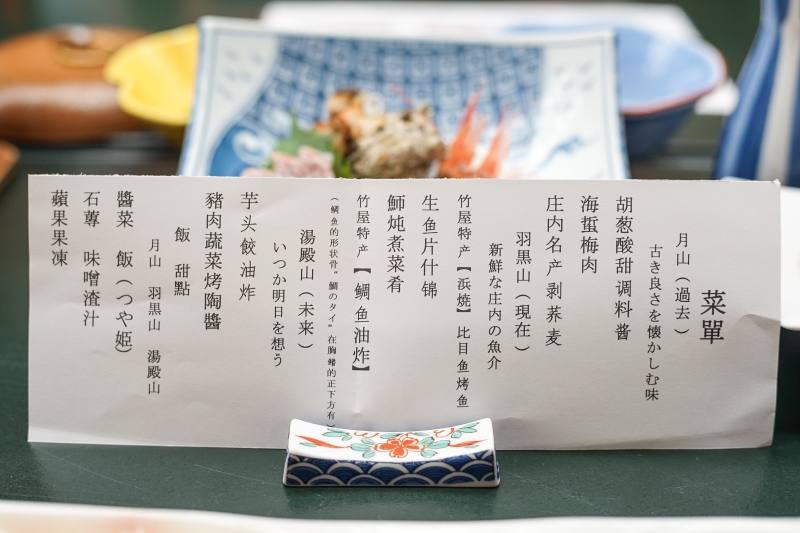 菜單
月山（過去）
古き良さを懐かしむ味
胡葱酸甜调料酱
海蜇梅肉
庄内名产剥荞麦
羽黒山（現在）
新鮮な庄内の魚介
竹屋特产【浜焼】比目鱼烤鱼
生鱼片什锦
鰤炖煮菜肴
竹屋特产【鲷鱼油炸】
（鲷鱼的形状骨"鯛のタイ"在胸鳍的正下方有）
湯殿山（未来）
いつか明日を想う
芋头餃油炸
豬肉蔬菜烤陶醬
飯 甜點
月山 羽黒山 湯殿山
醬菜 飯（つや姫）
石蓴 味噌渣汁
蘋果果凍